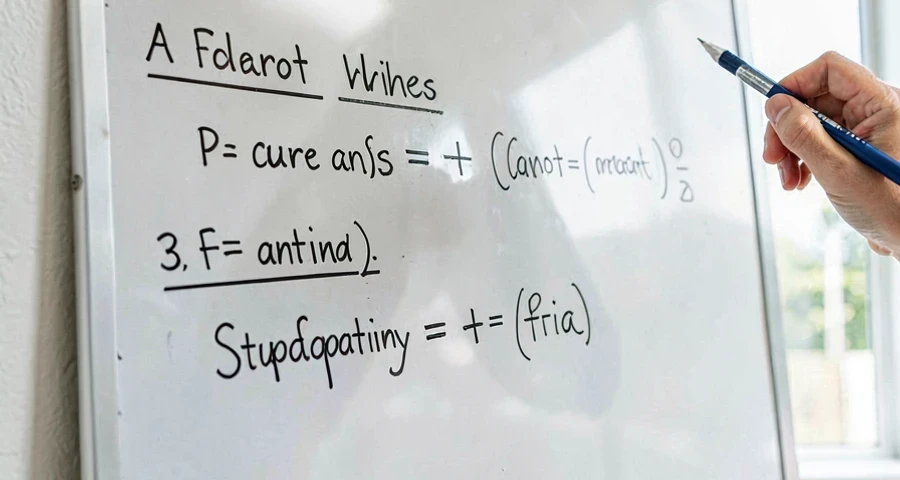 A Fdarot Wihes
P= cure anſs = + (Canot=(
3. F= antind).
Stupdopatiny = += (fria)